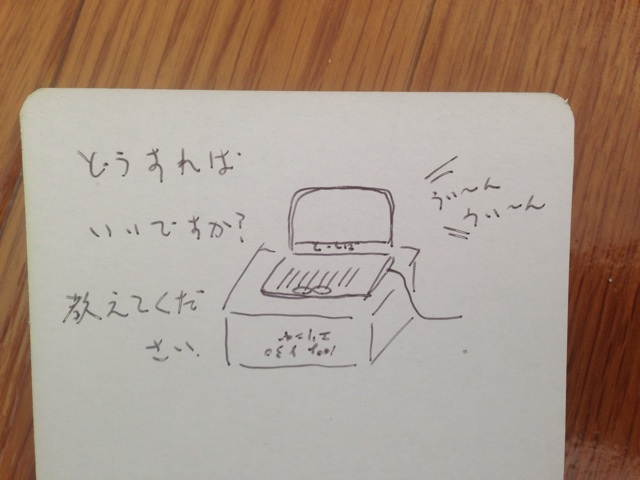 どうすれば
いいですか?
教えてくだ
さい.
うい〜ん
うい〜ん